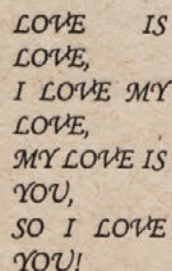 LOVE IS
LOVE,
I LOVE MY
LOVE,
MY LOVE IS
YOU,
SO I LOVE
YOU!